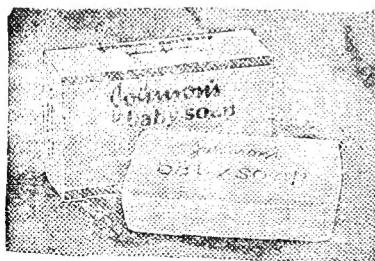 Johnson's
baby soap
Johnson's
baby soap